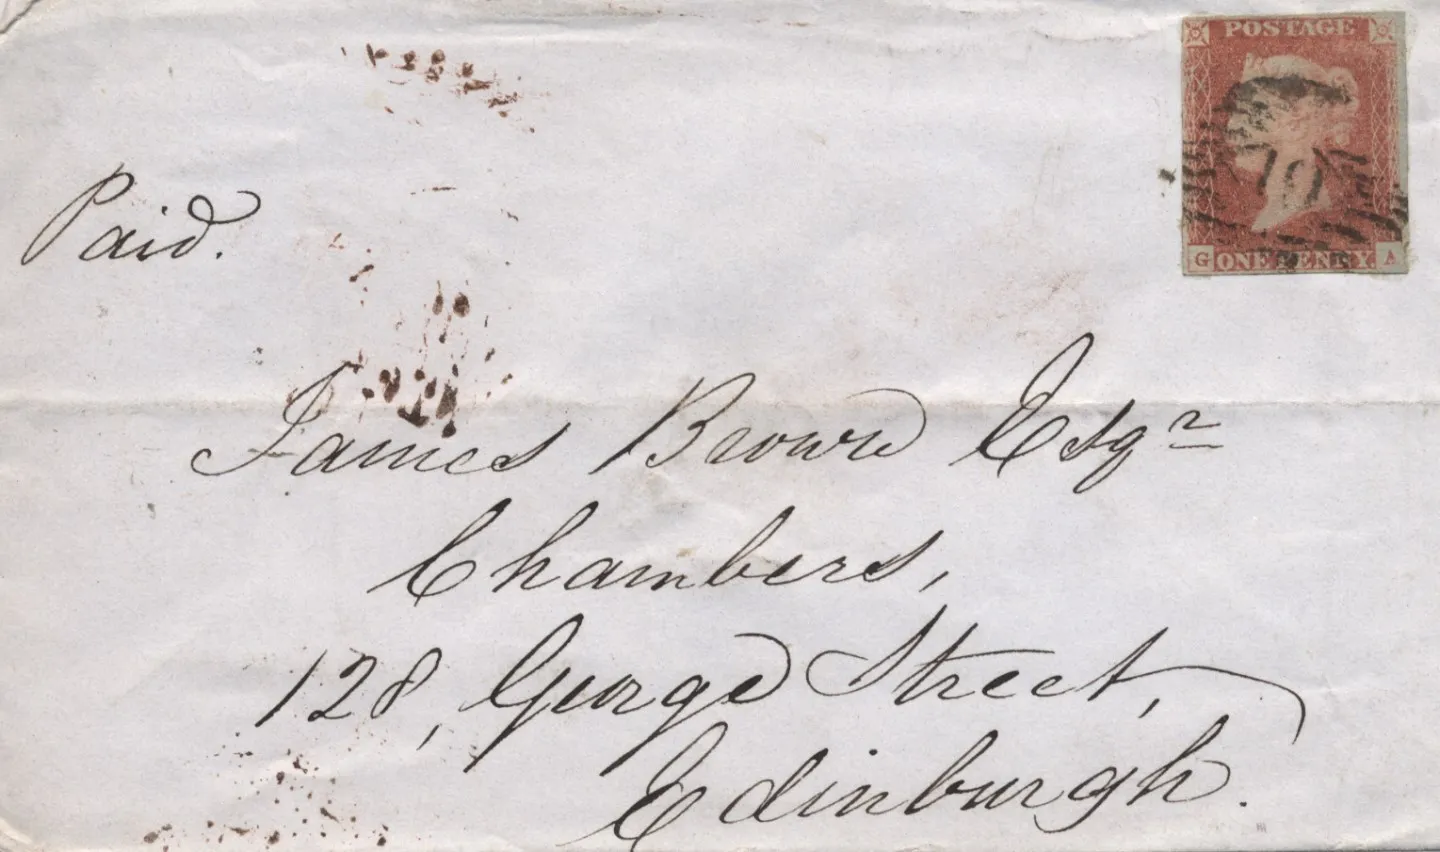 POSTAGE
Paid.
G ONE PENNY A
James Brown Esqr
Chambers,
128, George Street,
Edinburgh.